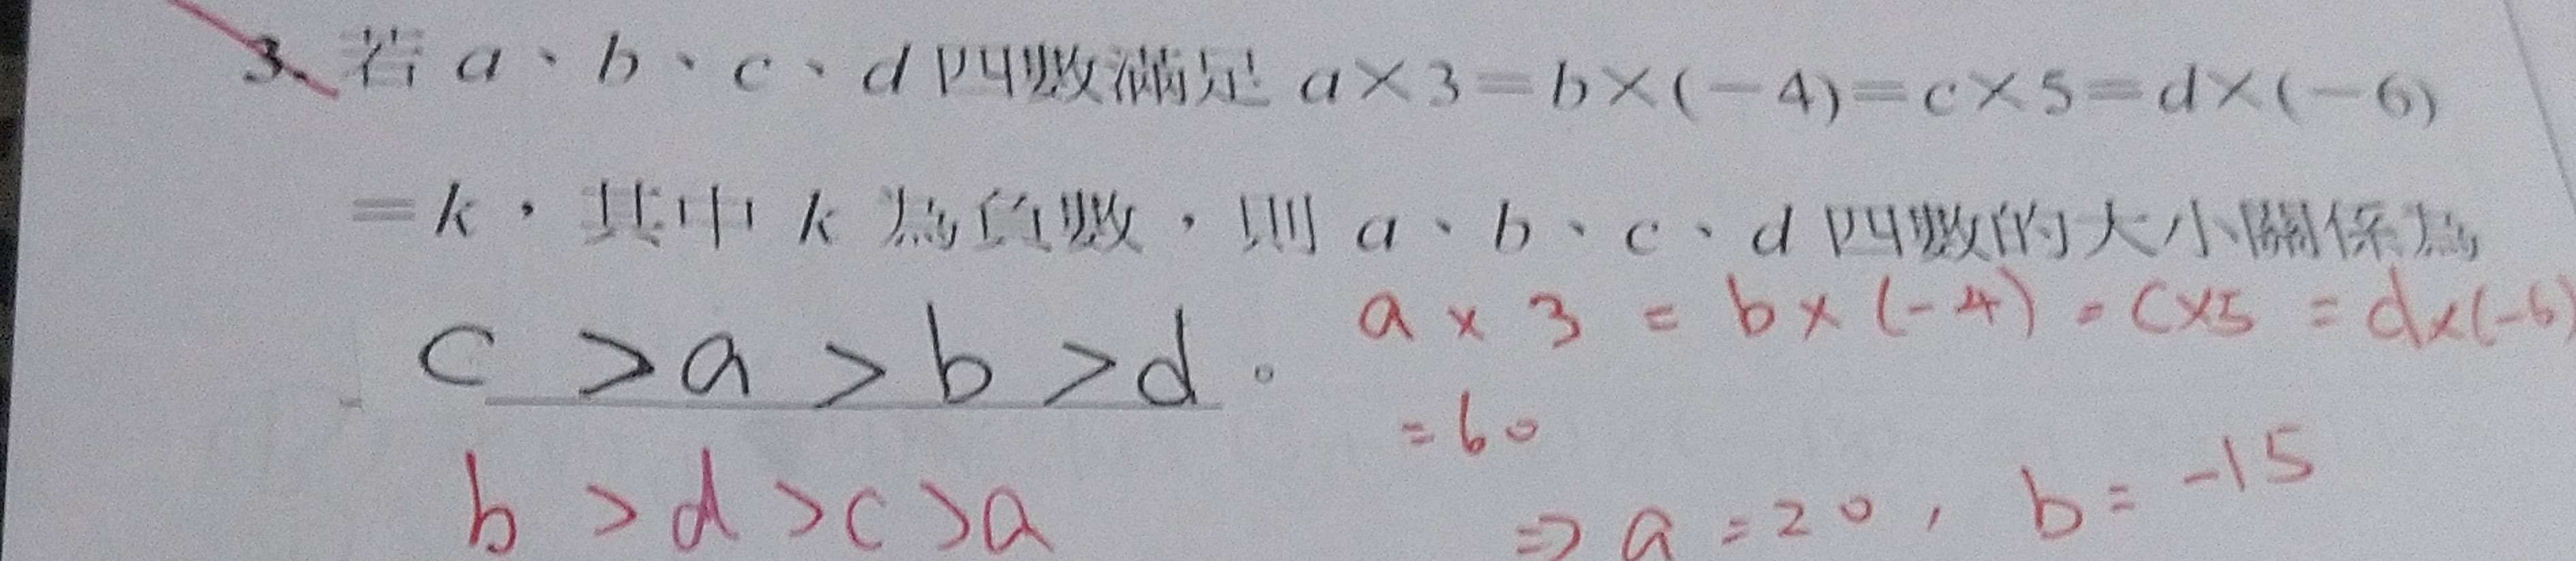 3. 若 a、b、c、d 四數滿足 a×3=b×(-4)=c×5=d×(-6)
=k,其中 k 為負數,則 a、b、c、d 四數的大小關係為
c > a > b > d 。
b > d > c > a
a × 3 = b × (-4) = c×5 = d×(-6)
= 60
⇒ a = 20 , b = -15